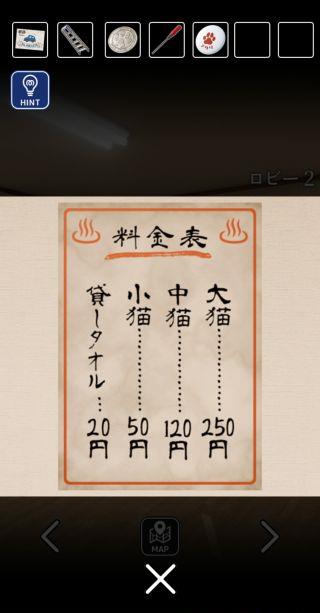 HINT
ロビー2
料金表
大猫……250円
中猫……120円
小猫……50円
貸しタオル…20円
MAP